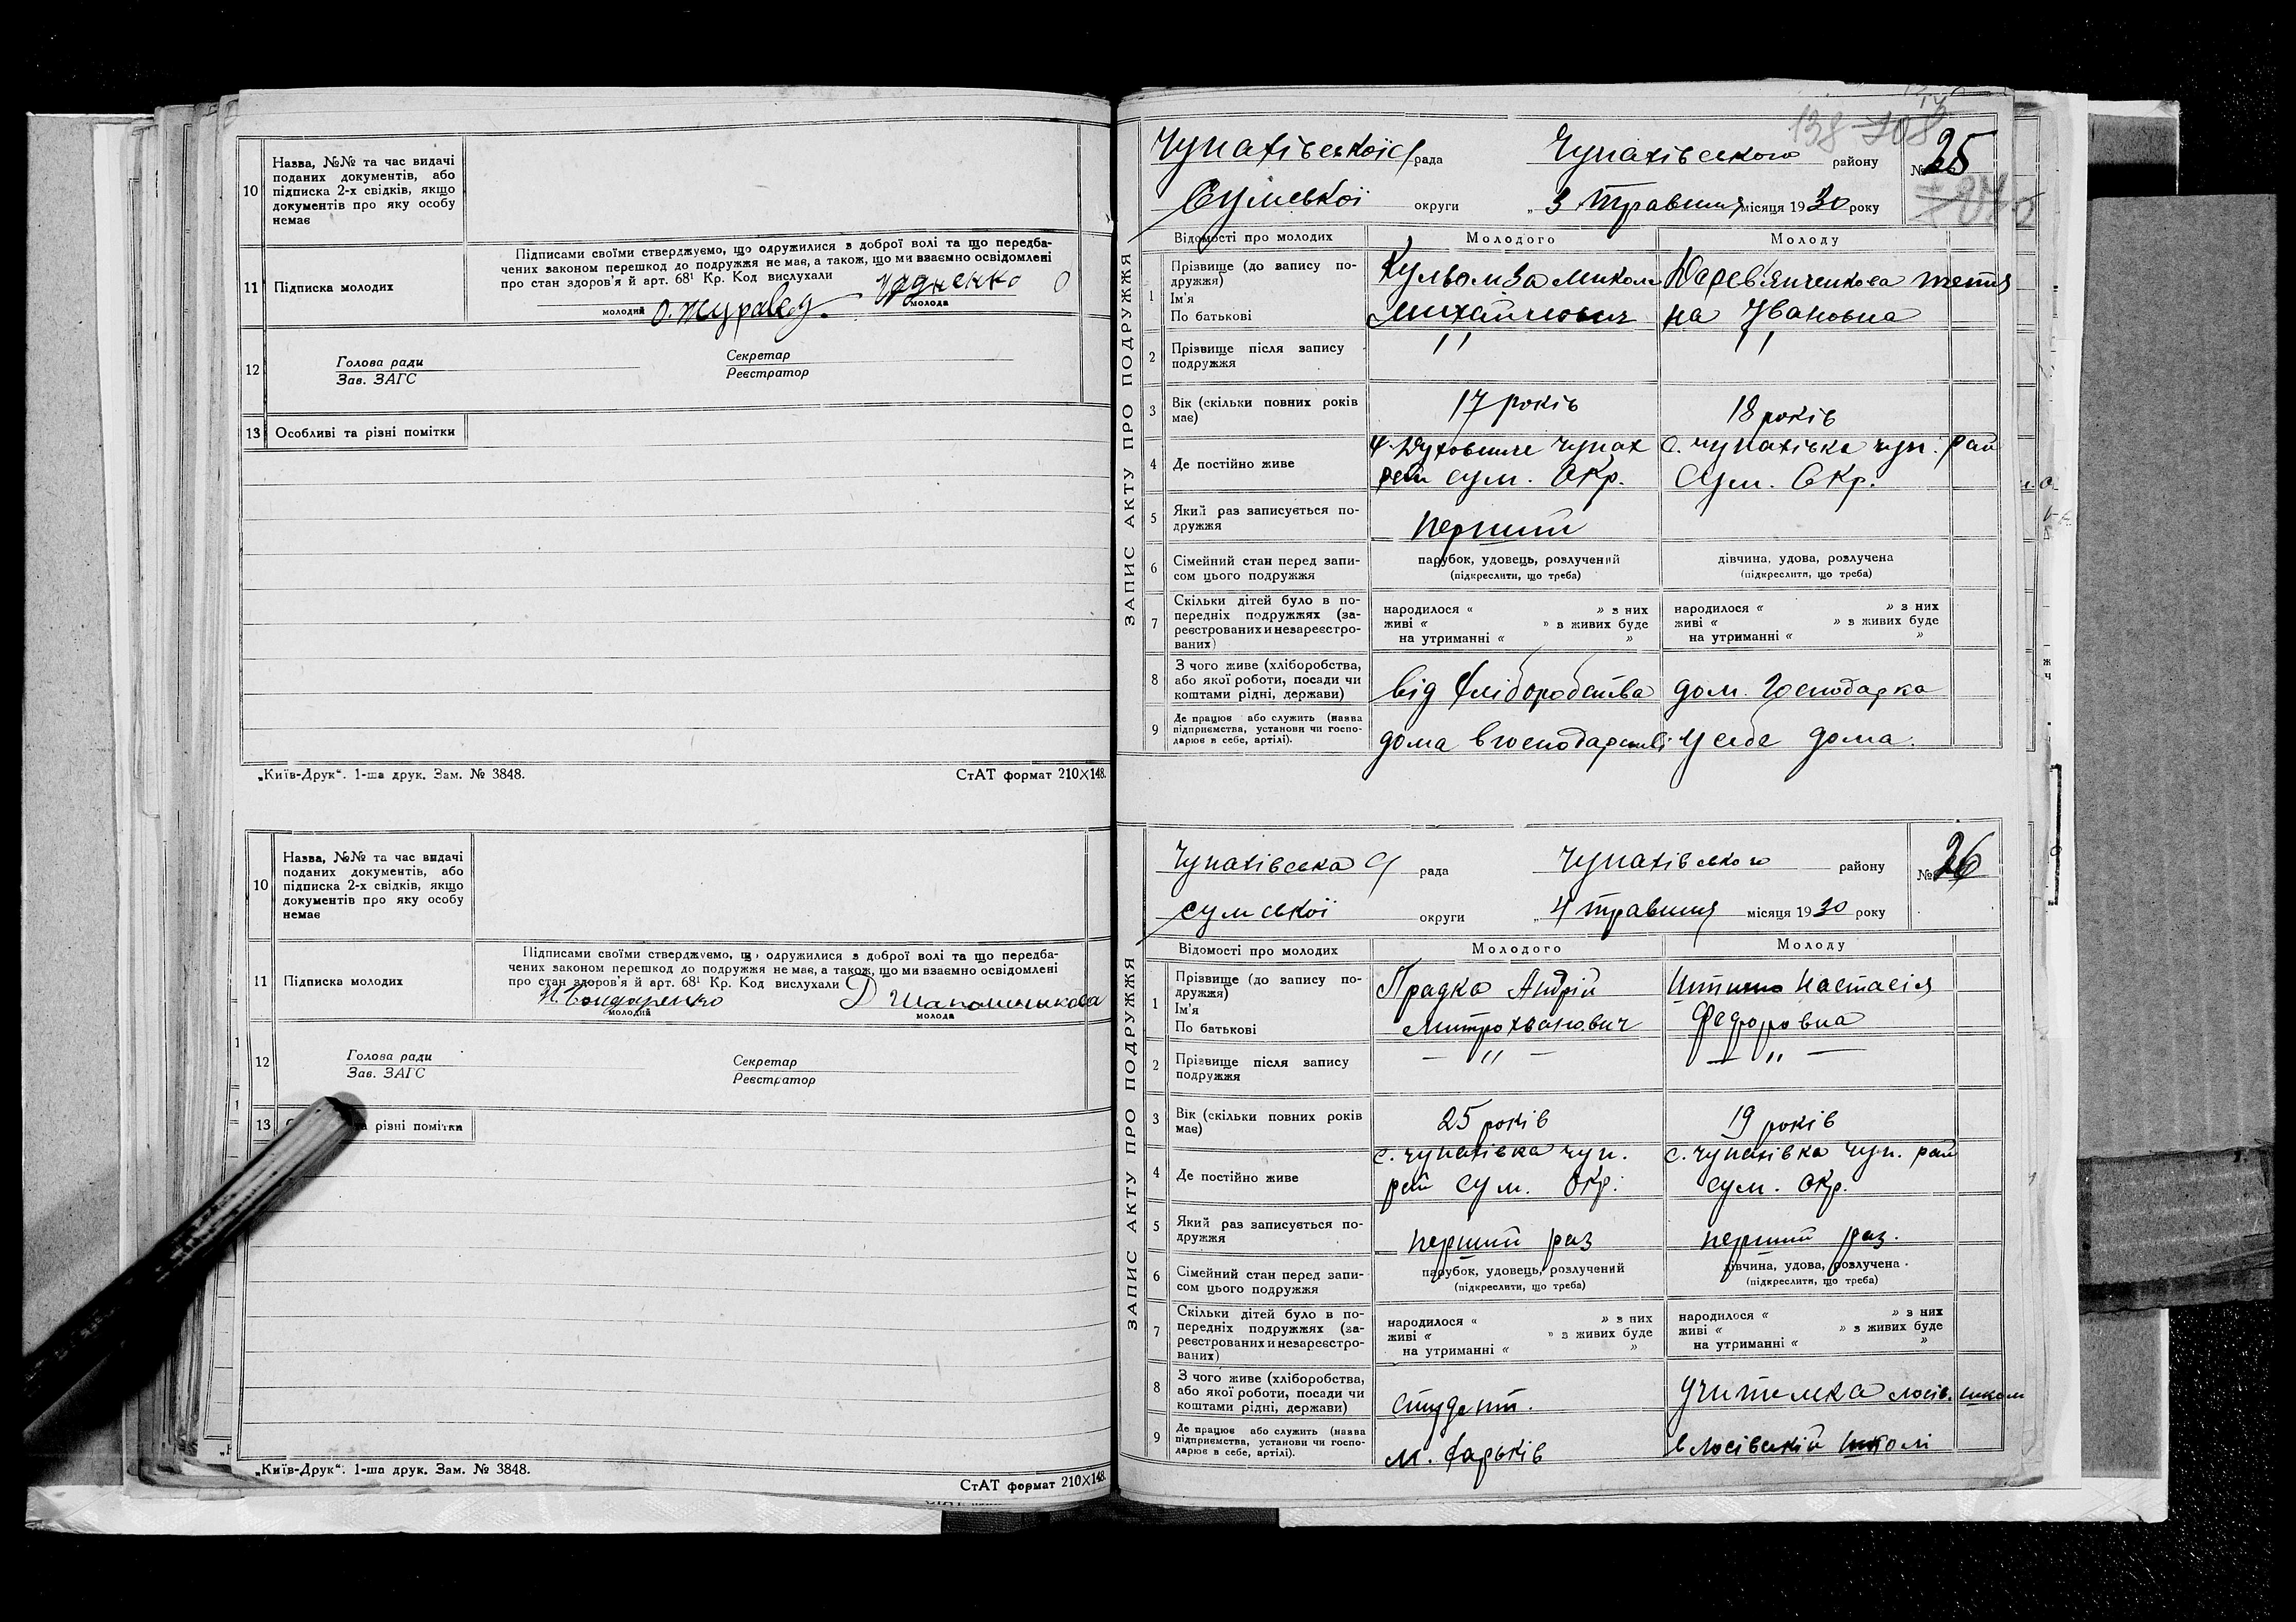 10
Назва, №№ та час видачі
поданих документів, або
підписка 2-х свідків, якщо
документів про яку особу
немає
11
Підписка молодих
Підписами своїми стверджуємо, що одружилися з доброї волі та що передба-
чених законом перешкод до подружжя не має, а також, що ми взаємно освідомлені
про стан здоров'я й арт. 68¹ Кр. Код вислухали
О. Журавед
молодий
молода
12
Голова ради
Зав. ЗАГС
Секретар
Реєстратор
13
Особливі та різні помітки
„Київ-Друк“. 1-ша друк. Зам. № 3848.
СтАТ формат 210×148.
10
Назва, №№ та час видачі
поданих документів, або
підписка 2-х свідків, якщо
документів про яку особу
немає
11
Підписка молодих
Підписами своїми стверджуємо, що одружилися з доброї волі та що передба-
чених законом перешкод до подружжя не має, а також, що ми взаємно освідомлені
про стан здоров'я й арт. 68¹ Кр. Код вислухали
Бондаренко
Д Шапошныкова
молодий
молода
12
Голова ради
Зав. ЗАГС
Секретар
Реєстратор
13
та різні помітки
„Київ-Друк“. 1-ша друк. Зам. № 3848.
СтАТ формат 210×148.
138 708
Чупахівської с/рада Чупахівського району № 25
Сумської округи „ 3 травшня місяця 1930 року
ЗАПИС АКТУ ПРО ПОДРУЖЖЯ
Відомості про молодих
Молодого
Молоду
1
Прізвище (до запису по-
дружжя)
Ім'я
По батькові
Микола
Михайлович
Тетя
на Івановна
2
Прізвище після запису
подружжя
"
"
3
Вік (скільки повних років
має)
17 років
18 років
4
Де постійно живе
Чупах
рай сум. Окр.
с. Чупахівка чуп. рай
Сум. Окр.
5
Який раз записується по-
дружжя
перший
6
Сімейний стан перед запи-
сом цього подружжя
парубок, удовець, розлучений
(підкреслити, що треба)
дівчина, удова, розлучена
(підкреслити, що треба)
7
Скільки дітей було в по-
передніх подружжях (за-
реєстрованих и незареєстро-
ваних)
народилося “ » з них
живі “ » в живих буде
на утриманні “ »
народилося “ » з них
живі “ » в живих буде
на утриманні “ »
8
З чого живе (хліборобства,
або якої роботи, посади чи
коштами рідні, держави)
від хліборобства
дом. господарка
9
Де працює або служить (назва
підприємства, установи чи госпо-
дарює в себе, артілі).
дома в господарстві
у себе дома.
Чупахівська с/ рада Чупахівського району № 26
сумської округи „ 4 травшня місяця 1930 року
ЗАПИС АКТУ ПРО ПОДРУЖЖЯ
Відомості про молодих
Молодого
Молоду
1
Прізвище (до запису по-
дружжя)
Ім'я
По батькові
Прадка Андрій
Митрохванович
Настасія
Федоровна
2
Прізвище після запису
подружжя
— " —
— " —
3
Вік (скільки повних років
має)
25 років
19 років
4
Де постійно живе
с. Чупахівка чуп.
рай сум. Окр.
с. Чупахівка Чуп. рай
сум. Окр.
5
Який раз записується по-
дружжя
перший раз
перший раз.
6
Сімейний стан перед запи-
сом цього подружжя
парубок, удовець, розлучений
(підкреслити, що треба)
дівчина, удова, розлучена
(підкреслити, що треба)
7
Скільки дітей було в по-
передніх подружжях (за-
реєстрованих и незареєстро-
ваних)
народилося “ » з них
живі “ » з живих буде
на утриманні “ »
народилося “ » з них
живі “ » з живих буде
на утриманні “ »
8
З чого живе (хліборобства,
або якої роботи, посади чи
коштами рідні, держави)
студент.
учителка лосів. школи
9
Де працює або служить (назва
підприємства, установи чи госпо-
дарює в себе, артілі).
м. Харьків
в Лосівській школі